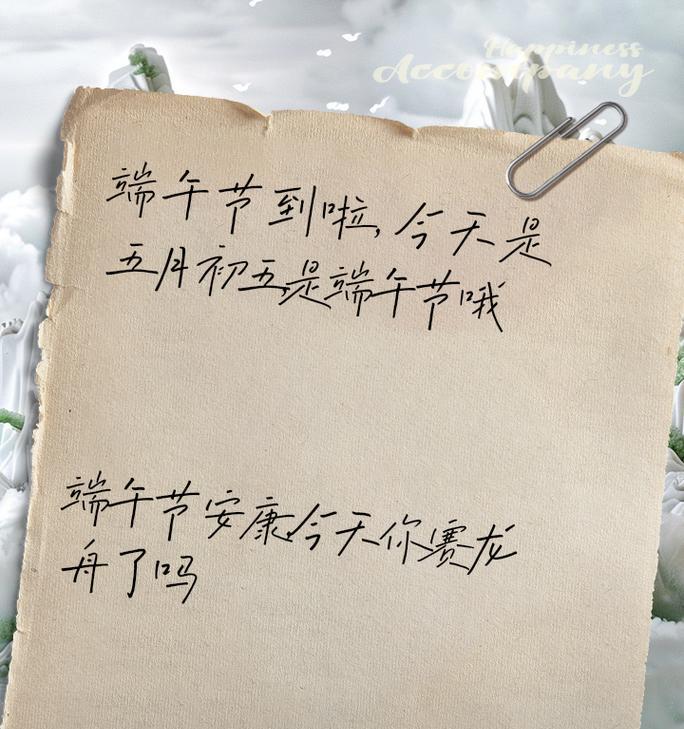 Happiness
Accompany
端午节到啦，今天是
五月初五，是端午节哦
端午节安康，今天你赛龙
舟了吗